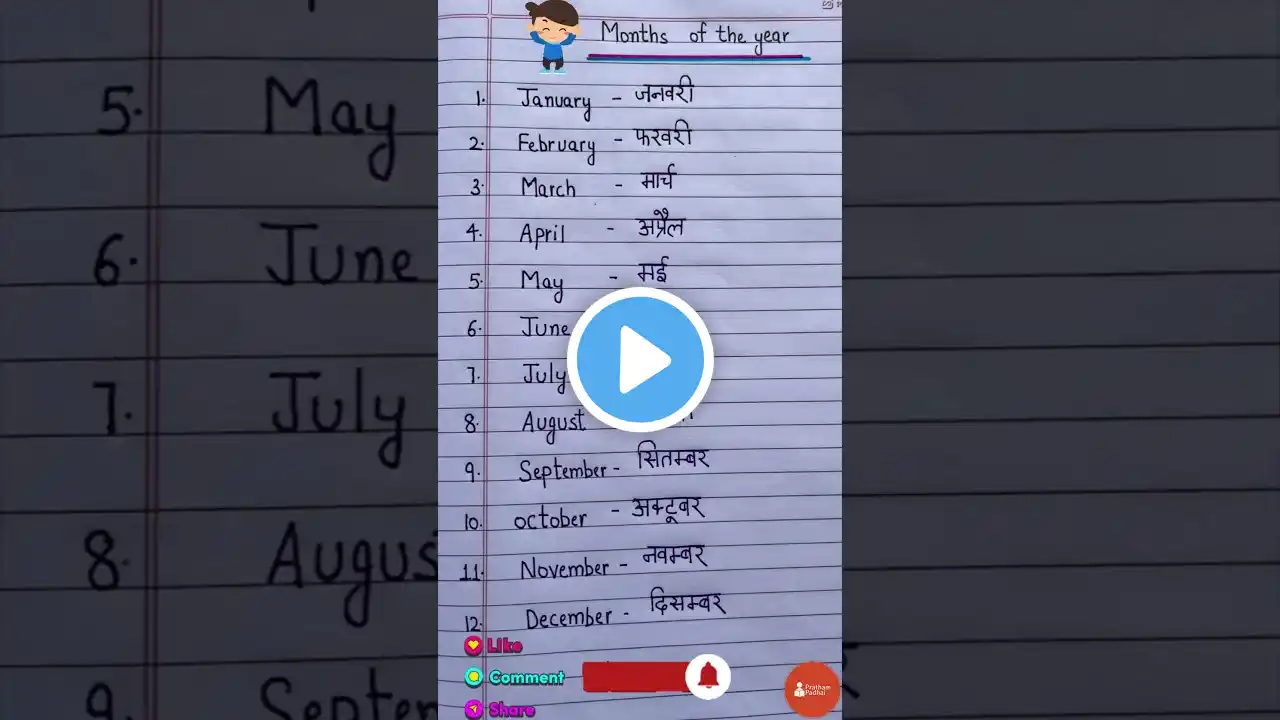 Months of the year
1. January - जनवरी
2. February - फरवरी
3. March - मार्च
4. April - अप्रैल
5. May - मई
6. June
7. July
8. August
9. September - सितम्बर
10. october - अक्टूबर
11. November - नवम्बर
12. December - दिसम्बर
Like
Comment
Share
Pratham
Padhai
5. May
6. June
7. July
8. Augus
9. Septem